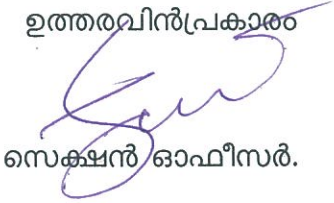 ഉത്തരവിൻപ്രകാരം
സെക്ഷൻ ഓഫീസർ.